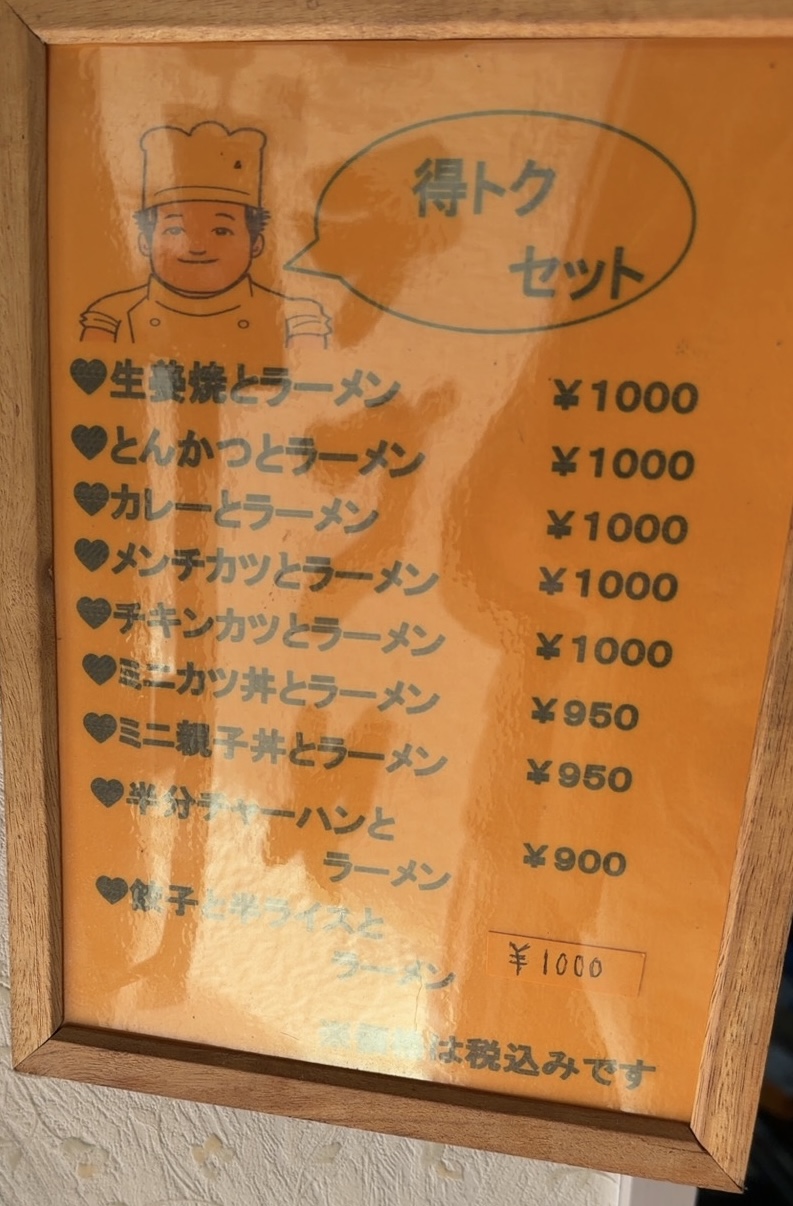 得トク
セット
♥生姜焼とラーメン ¥1000
♥とんかつとラーメン ¥1000
♥カレーとラーメン ¥1000
♥メンチカツとラーメン ¥1000
♥チキンカツとラーメン ¥1000
♥ミニカツ丼とラーメン ¥950
♥ミニ親子丼とラーメン ¥950
♥半分チャーハンと
ラーメン ¥900
♥餃子と半ライスと
ラーメン ¥1000
は税込みです